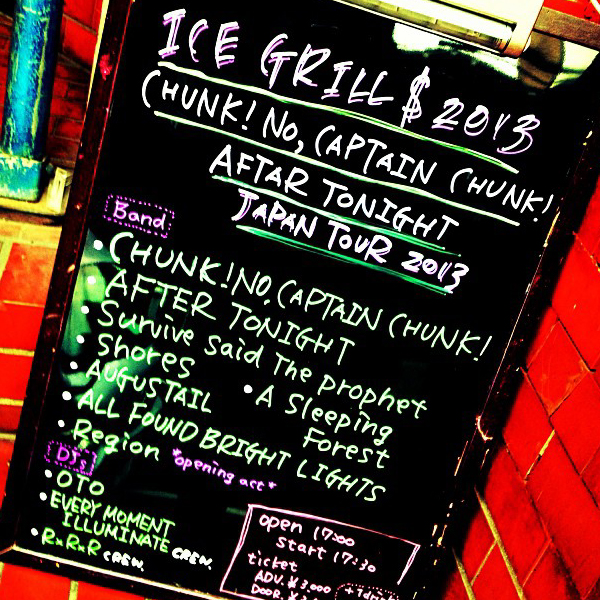 ICE GRILL $ 2013
CHUNK! NO, CAPTAIN CHUNK!
AFTAR TONIGHT
JAPAN TOUR 2013
Band
• CHUNK! NO, CAPTAIN CHUNK!
• AFTER TONIGHT
• Survive Said The prophet
• Shores
• A Sleeping Forest
• AUGUSTAIL
• ALL FOUND BRIGHT LIGHTS
• Region *opening act*
DJs
• OTO
• EVERY MOMENT
ILLUMINATE CREW.
• RxRxR CREW.
open 17:00
start 17:30
ticket
ADV. ¥3,000
DOOR.